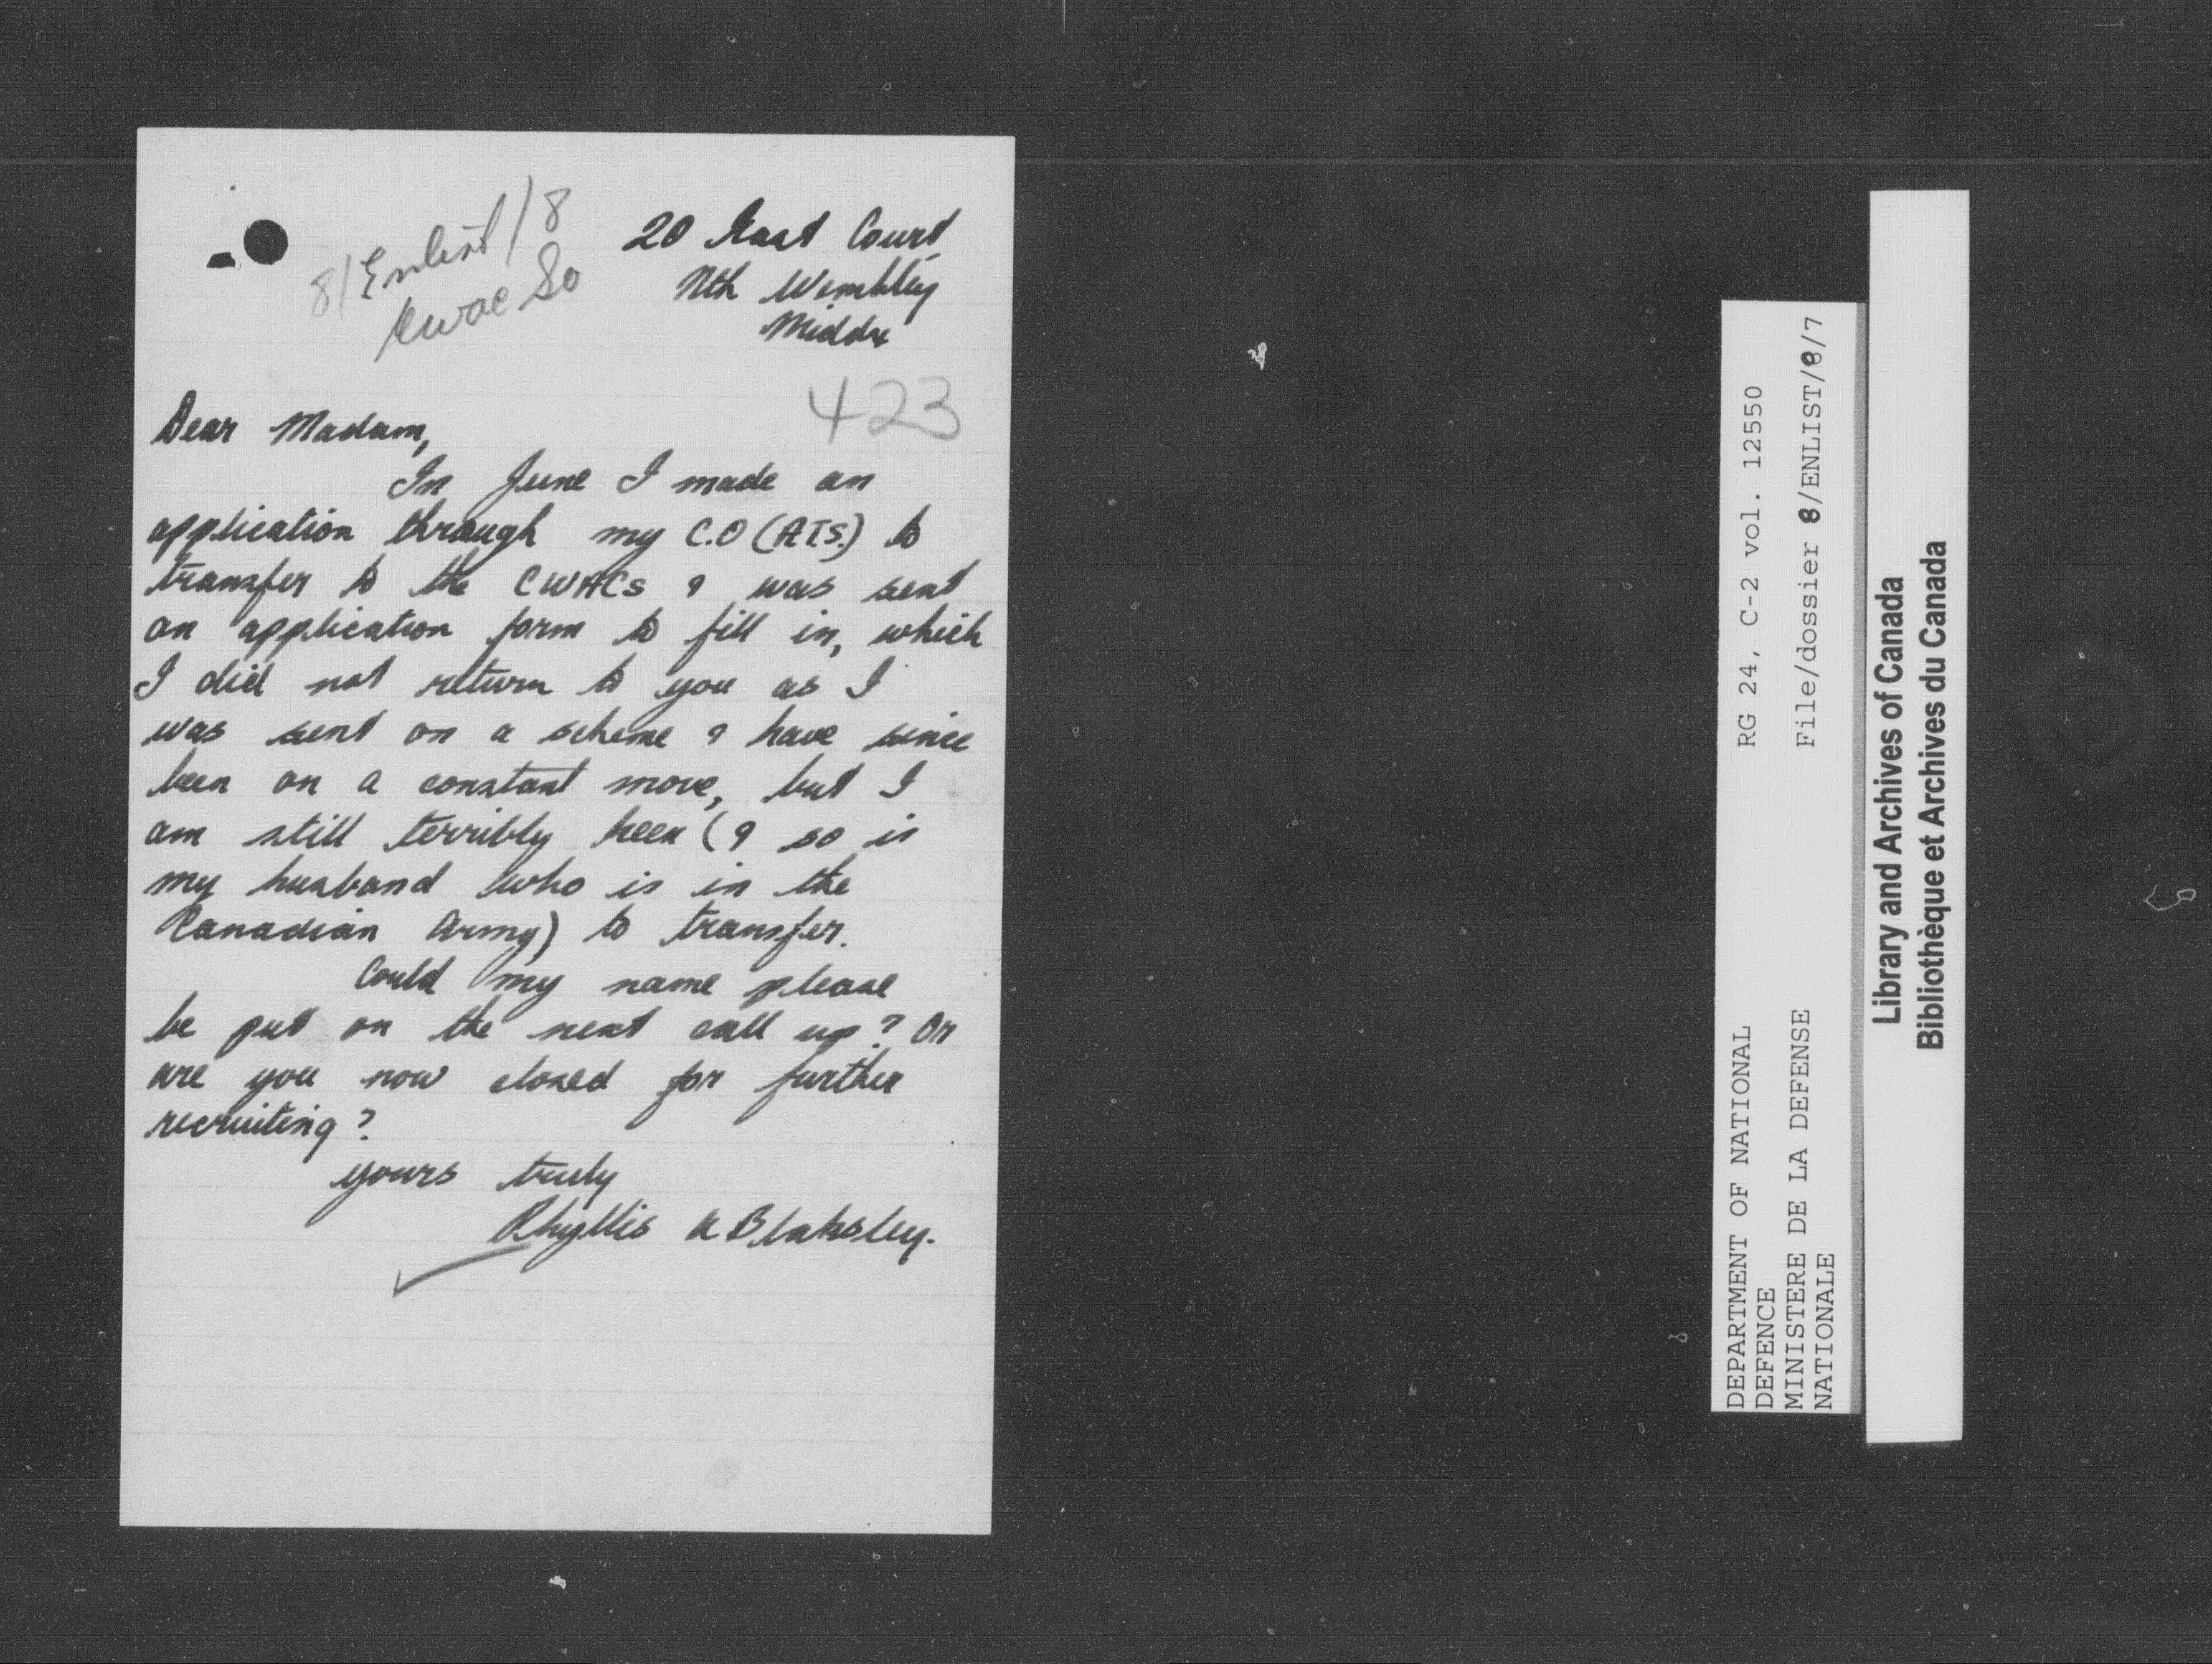 8/Enlist/8
CWAC So
20 East Court
Nth Wembley
Middx
423
Dear Madam,
In June I made an
application through my C.O (ATS.) to
transfer to the CWACs & was sent
an application form to fill in, which
I did not return to you as I
was sent on a scheme & have since
been on a constant move, but I
am still terribly keen (& so is
my husband who is in the
Canadian Army) to transfer.
Could my name please
be put on the next call up? Or
are you now closed for further
recruiting?
yours truly
Phyllis K Blaksley.
RG 24, C-2 vol. 12550
File/dossier 8/ENLIST/8/7
DEPARTMENT OF NATIONAL
DEFENCE
MINISTERE DE LA DEFENSE
NATIONALE
Library and Archives of Canada
Bibliothèque et Archives du Canada